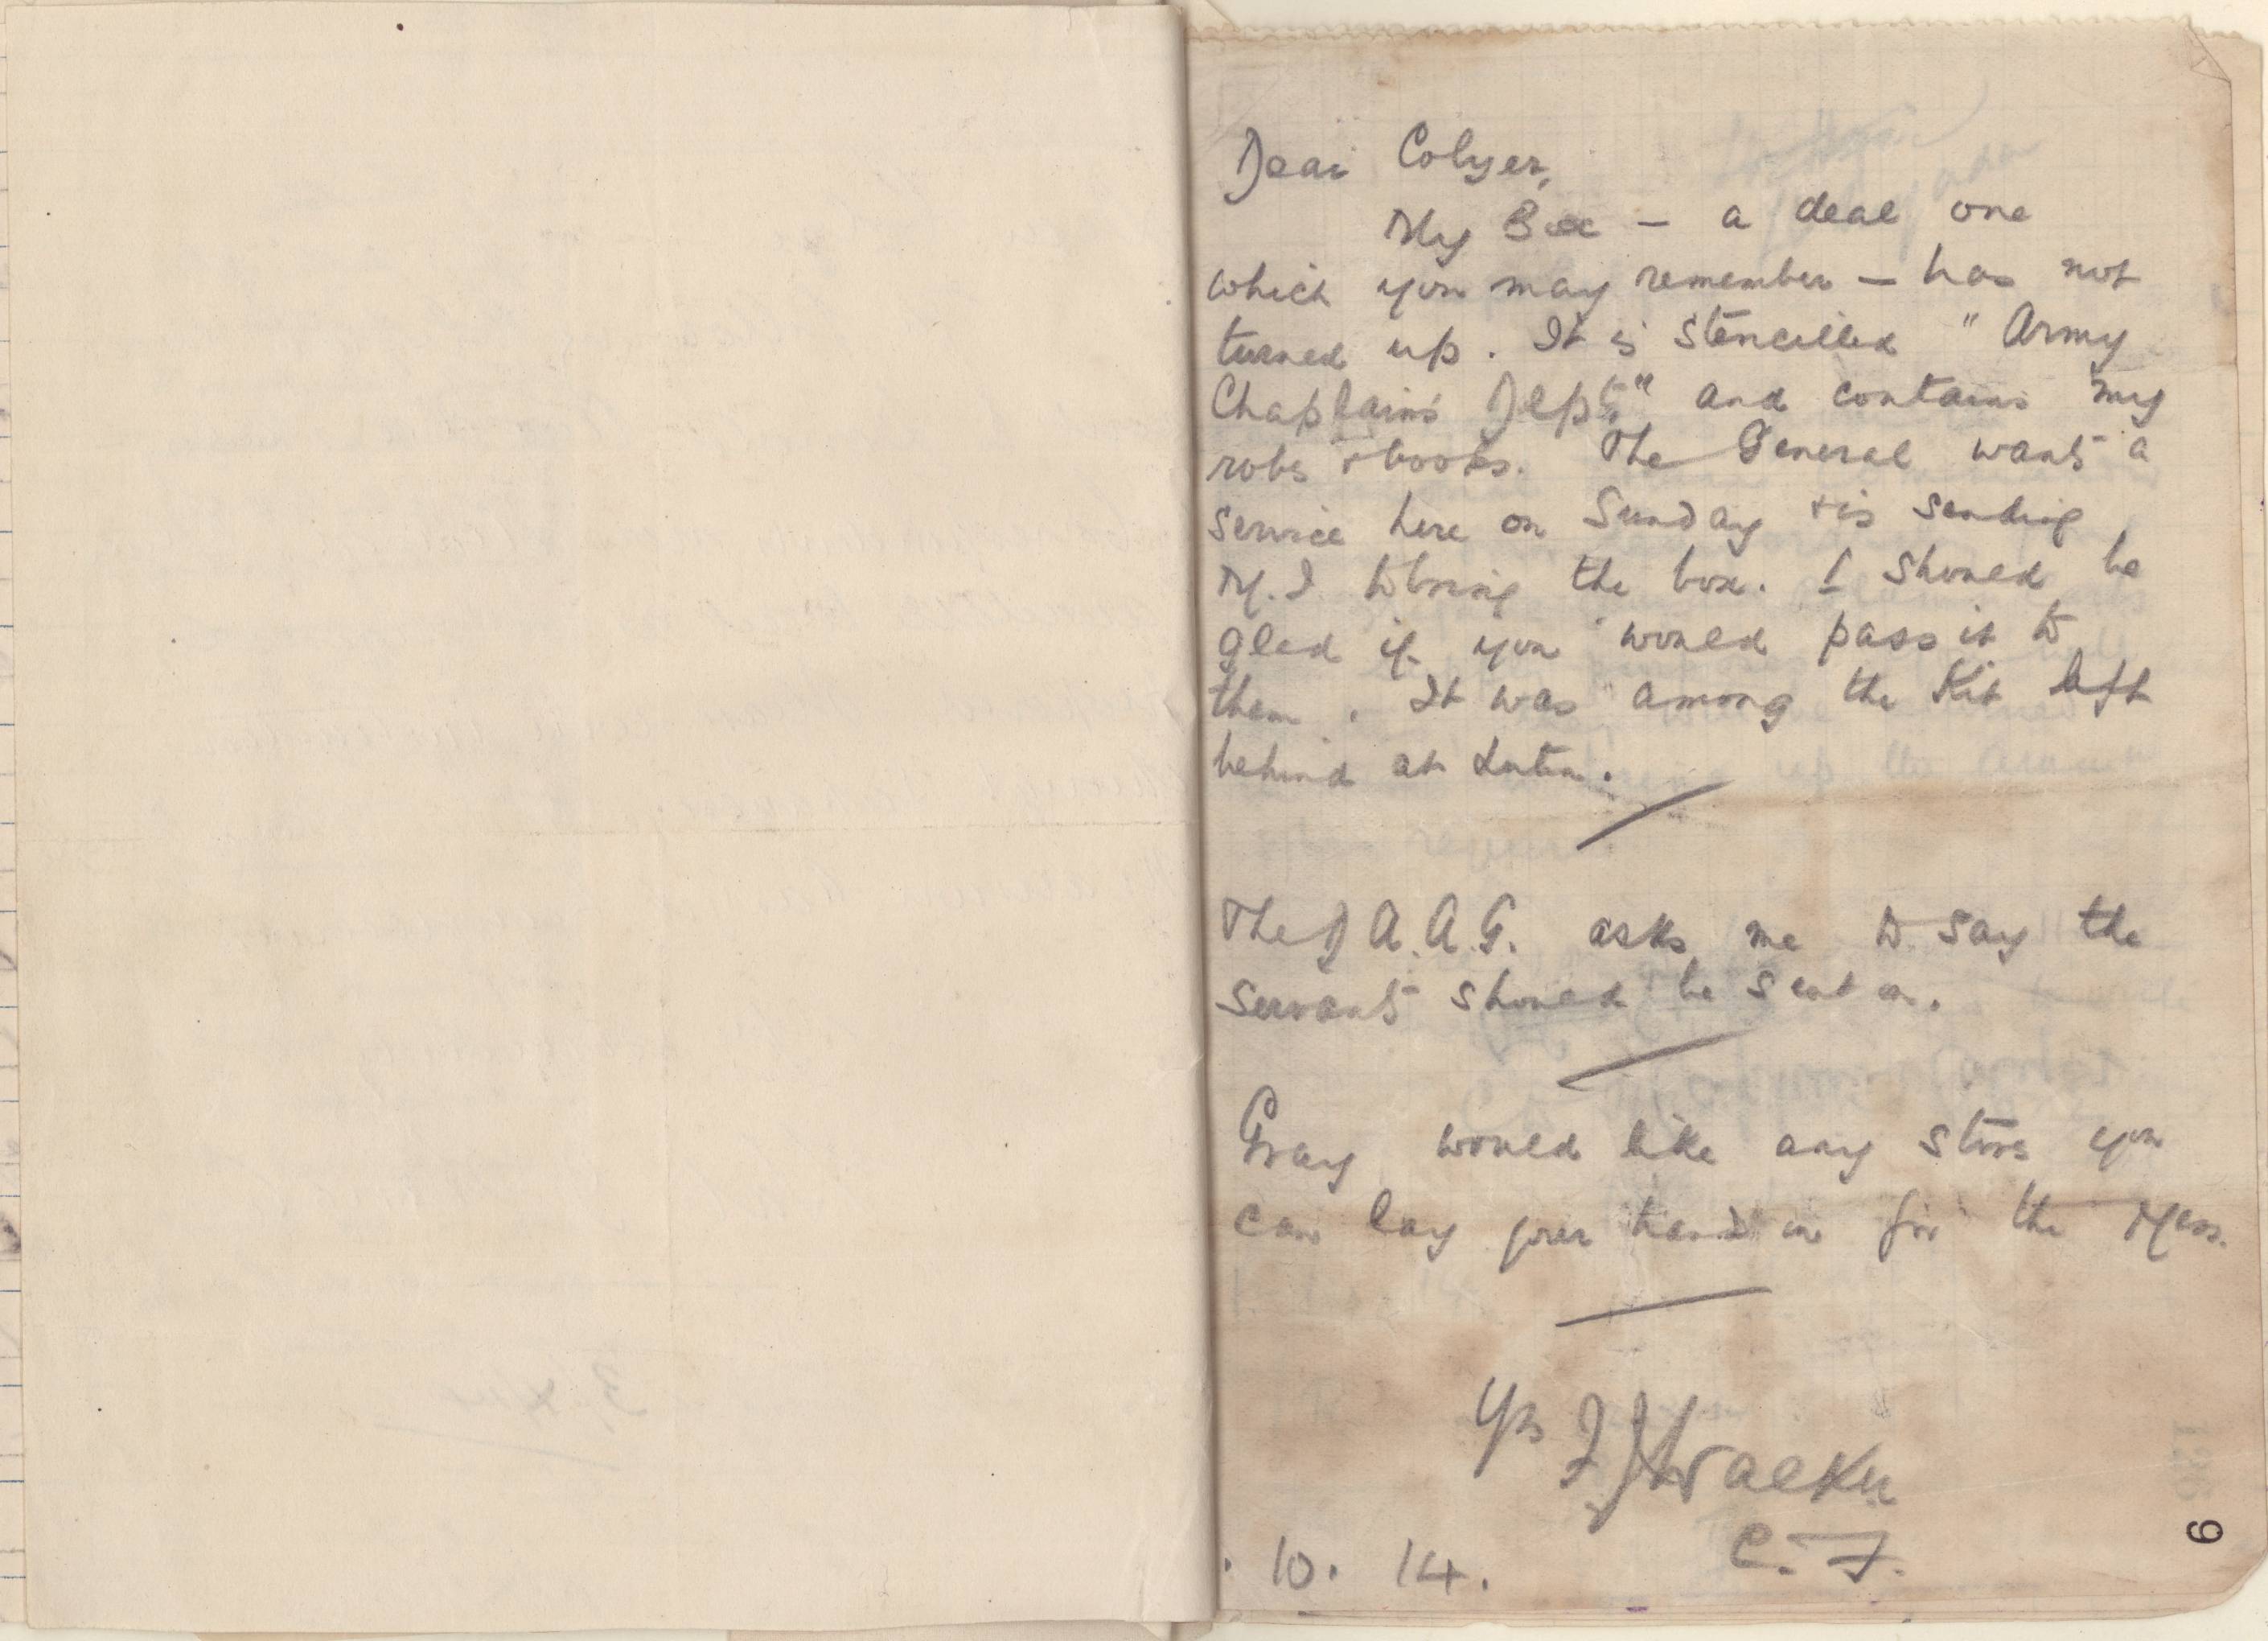 Dear Colyer,
My Box – a deal one
which you may remember – has not
turned up. It is stencilled "Army
Chaplains Dept." and contains my
robes & books. The General wants a
service here on Sunday & is sending
M.I. to bring the box. I should be
glad if you would pass it to
them. It was among the Kit left
behind at
The D A.A.G. asks me to say the
servants should be sent on.
Gray would like any stores you
can lay your hands on for the Mess.
Yrs F J Walker
C.F.
. 10. 14.
6